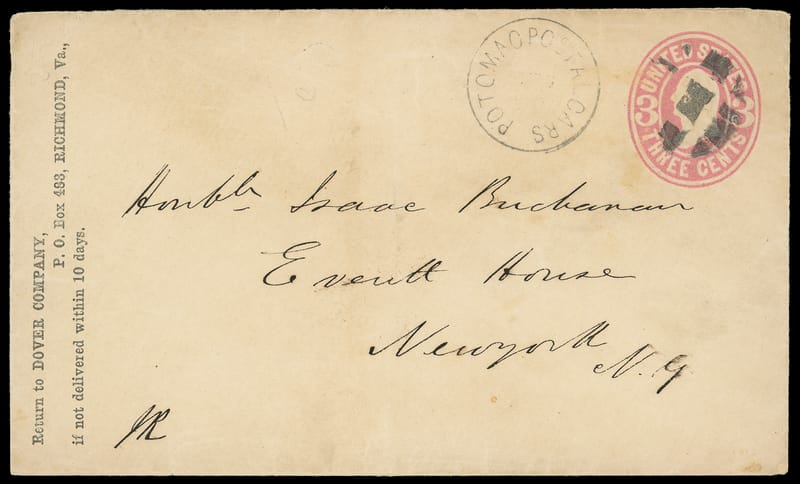 Return to DOVER COMPANY,
P. O. Box 483, RICHMOND, Va.,
if not delivered within 10 days.
POTOMAC POSTAL CARS
UNITED STATES
3 3
THREE CENTS
Honble Isaac Buchanan
Everett House
Newyork
N.Y
JR